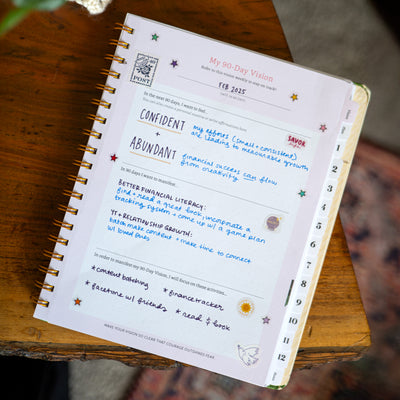 My 90-Day Vision
Refer to this vision weekly to stay on track!
FEB 2025
POST
In the next 90 days, I want to feel...
CONFIDENT
my efforts (small + consistent)
are leading to measurable growth
SAVOR
+
ABUNDANT
financial success can flow
from creativity
In 90 days I want to manifest...
BETTER FINANCIAL LITERACY:
find + read a great book, incorporate a
tracking system + come up w/ a game plan
YT + RELATIONSHIP GROWTH:
batch make content + make time to connect
w/ loved ones
In order to manifest my 90-Day Vision, I will focus on these activities...
★ content batching
★ finance tracker
★ facetime w/ friends
★ read 1 book
MAKE YOUR VISION SO CLEAR THAT COURAGE OUTSHINES FEAR
1
2
3
4
5
6
7
8
9
10
11
12